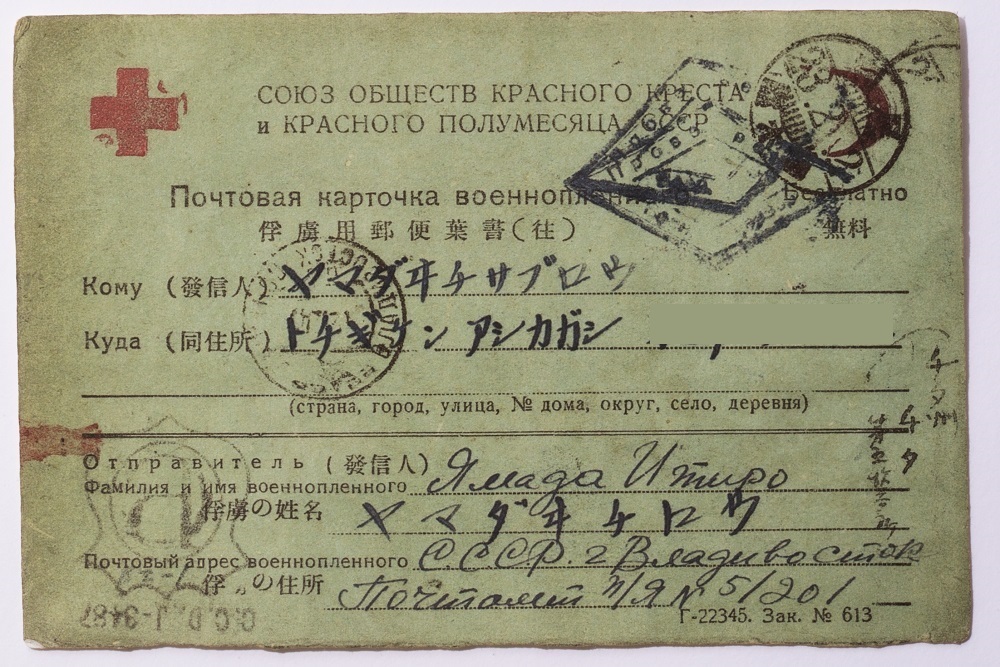 СОЮЗ ОБЩЕСТВ КРАСНОГО КРЕСТА
и КРАСНОГО ПОЛУМЕСЯЦА СССР
Почтовая карточка военнопленного Бесплатно
俘虜用郵便葉書(往) 無料
Кому (發信人) ヤマダヰチサブロウ
Куда (同住所) トチギケン アシカガシ
(страна, город, улица, № дома, округ, село, деревня)
Отправитель (發信人) Ямада Итиро
Фамилия и имя военнопленного
俘虜の姓名 ヤマダヰチロウ
Почтовый адрес военнопленного СССР. г Владивосток
俘虜の住所 Почтамт п/Я N 5/201
Г-22345. Зак. № 613
C.C.D.J-3487